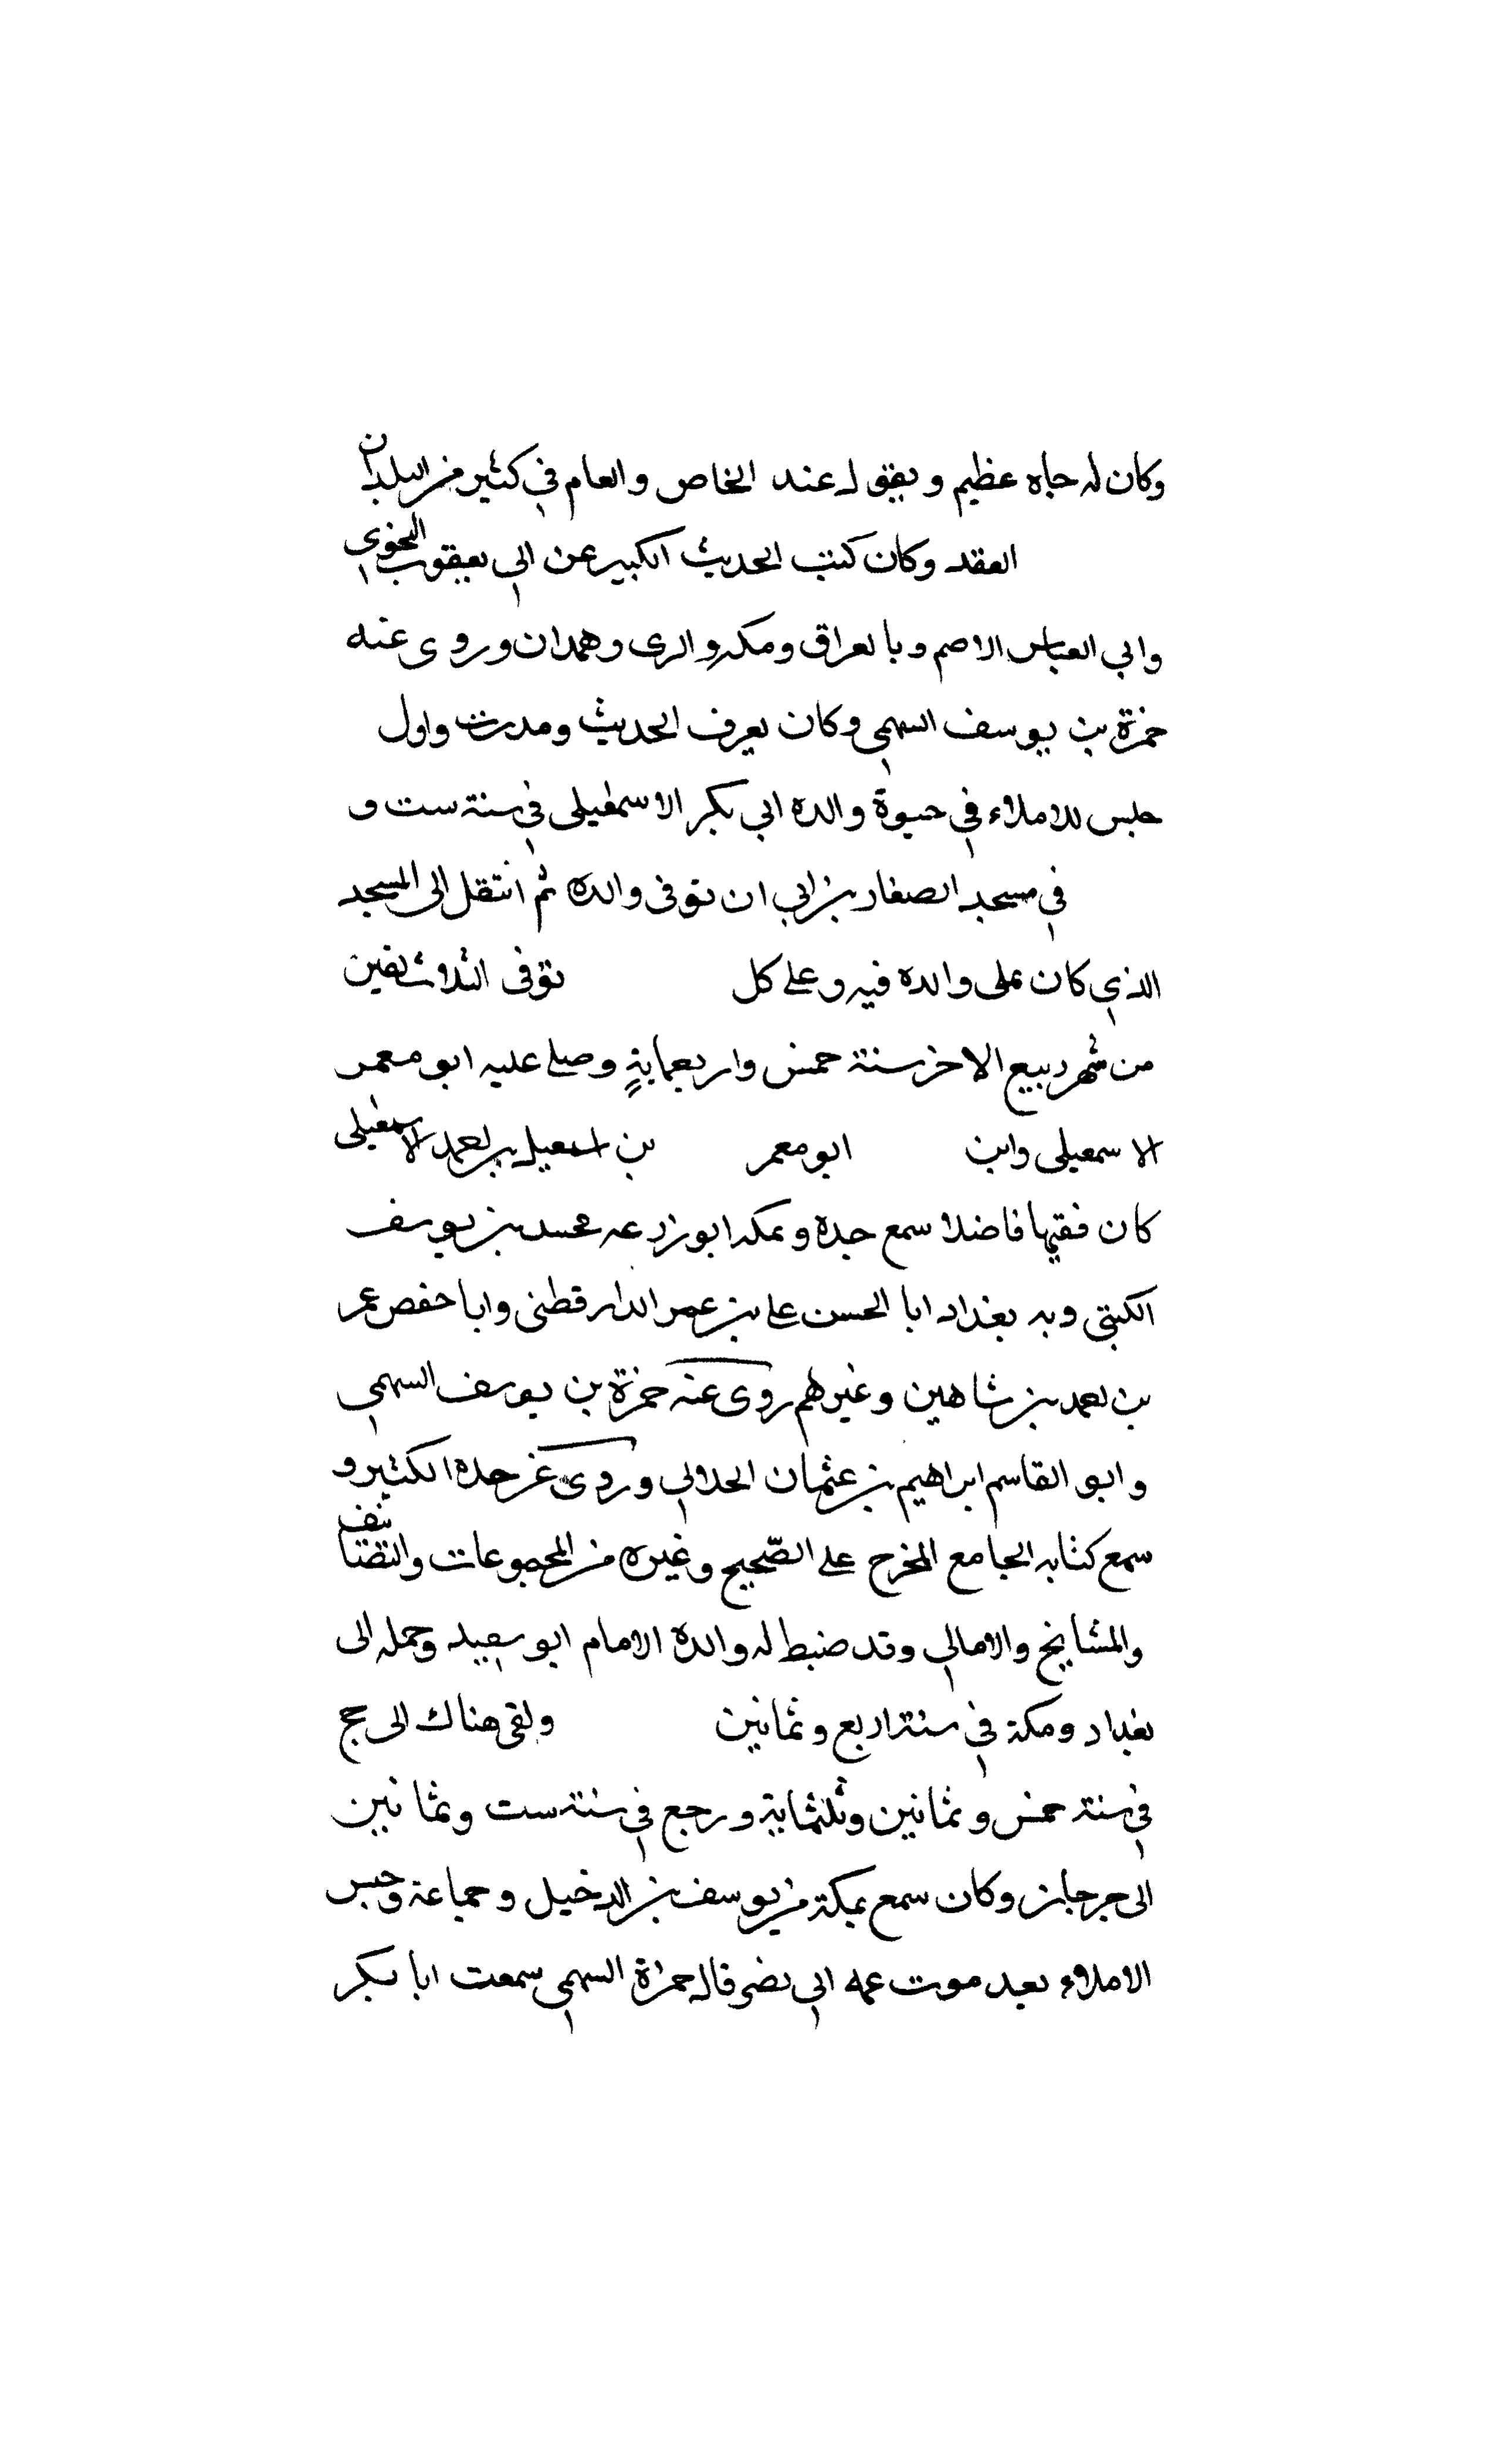 وكان له جاه عظيم و يقق له عند الخاص والعام في كثير من البلدان
العقد وكان كتب الحديث الكبير عن ابي يعقوب النحوي
وابي العباس الاصم وبالعراق ومكه والرى وهمدان وروى عنه
حمزة بن يوسف السهمي وكان يعرف الحديث ومدرت واول
جلس للاملاء في حيوة والده ابي بكر الاسمعيلى في سنة ست و
في مسجد الصفار بن ابي ان توفى والده ثم انتقل الى المسجد
الذي كان يملى والده فيه وعلى كل توفى الثلاث بقين
من شهر ربيع الاخر سنة خمس واربعماية وصلى عليه ابو معمر
الاسمعيلى وابن ابو معمر بن اسمعيل بن احمد الاسمعيلى
كان فقيها فاضلا سمع جده وبمكه ابو زرعه محمد بن يوسف
الكبتى وبه بغداد ابا الحسن على بن عمر الدارقطنى وابا حفص عمر
بن احمد بن شاهين وغيرهم روى عنه حمزة بن يوسف السهمي
وابو القاسم ابراهيم بن عثمان الحلالي وروى عن جده الكثير و
سمع كتابه الجامع المخرج على الصّحيح وغيره من المجموعات والتصنا نيف
والمشايخ والامالي وقد ضبط له والده الامام ابو سعيد وحمله الى
بغداد ومكة في سنة اربع وثمانين ولقى هناك الى حج
في سنة خمس وثمانين وثلثماية ورجع في سنة ست وثمانين
الى جرجان وكان سمع بمكة من يوسف بن الدخيل وجماعة وجلس
الاملاء بعد موت عمه ابي نضر قال حمزة السهمي سمعت ابا بكر